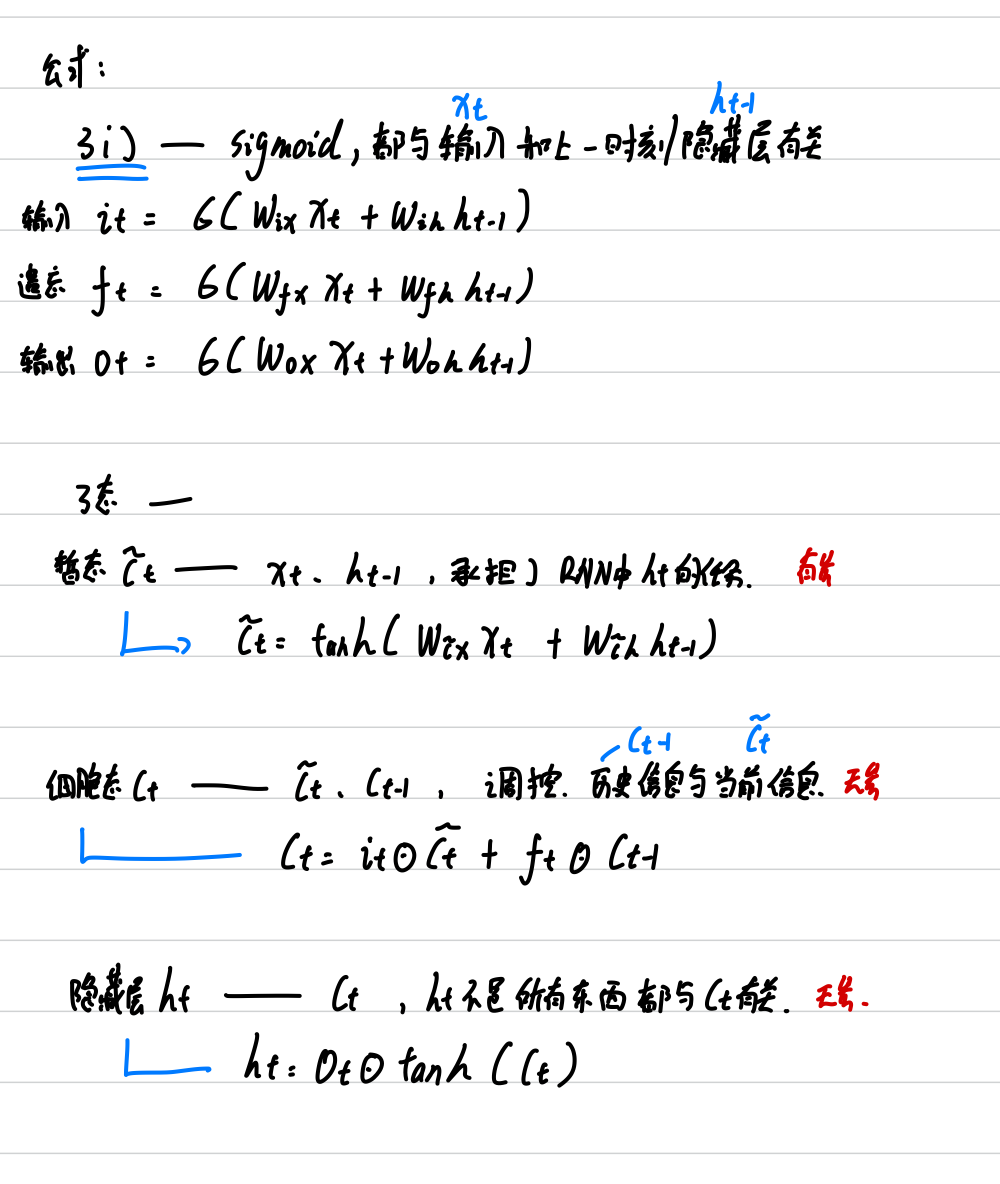 公式:
xt ht-1
3门 — sigmoid, 都与输入和上一时刻隐藏层有关
输入 it = σ(Wix xt + Wih ht-1)
遗忘 ft = σ(Wfx xt + Wfh ht-1)
输出 Ot = σ(Wox xt + Woh ht-1)
3态 —
暂态 C̃t — xt、ht-1, 承担了RNN中ht的任务.
C̃t = tanh(Wc̃x xt + Wc̃h ht-1)
Ct-1 C̃t
细胞态 Ct — C̃t、Ct-1, 调控. 历史信息与当前信息.
Ct = it⊙C̃t + ft⊙Ct-1
隐藏层 ht — Ct, ht不是所有东西都与Ct有关.
ht = Ot⊙tanh(Ct)